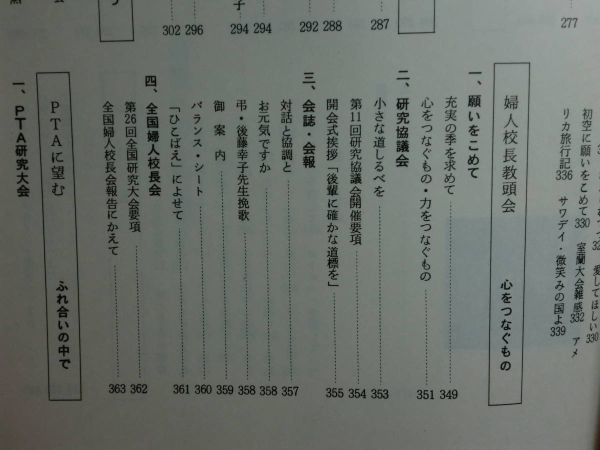 277
初空に願いをこめて330 室蘭大会雑感332 アメ
リカ旅行記336 サワデイ・微笑みの国よ339
愛してほしい330
婦人校長教頭会 心をつなぐもの
一、願いをこめて
充実の季を求めて 349
心をつなぐもの・力をつなぐもの 351
二、研究協議会
小さな道しるべを 353
第11回研究協議会開催要項 354
開会式挨拶「後輩に確かな道標を」 355
三、会誌・会報
対話と協調と 357
お元気ですか 358
弔・後藤幸子先生挽歌 358
御案内 359
バランス・シート 360
「ひこばえ」によせて 361
四、全国婦人校長会
第26回全国研究大会要項 362
全国婦人校長会報告にかえて 363
PTAに望む ふれ合いの中で
一、PTA研究大会
287
288
292
294
294
296
302
子